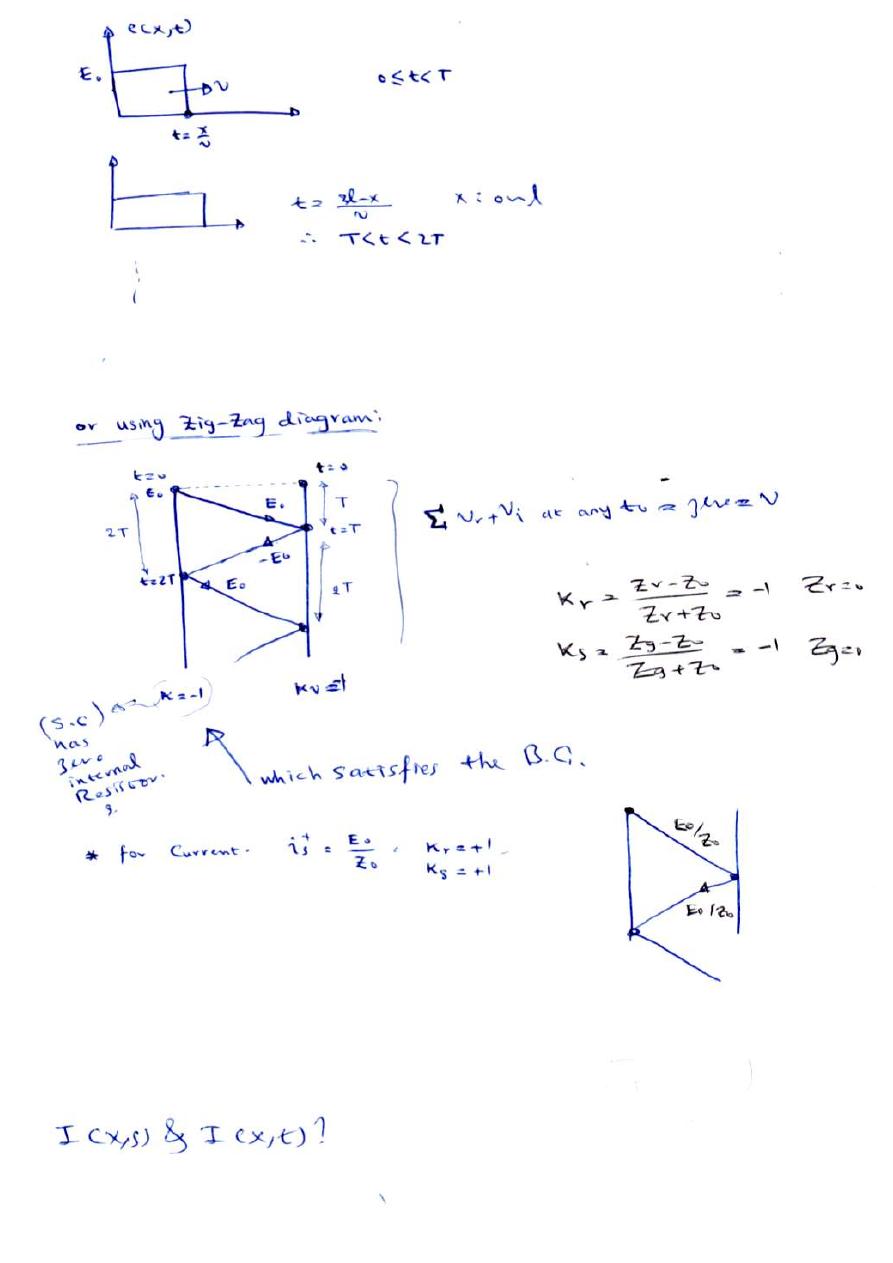 e(x,t)
E₀
v
0≤t<T
t= x/v
t= 2l-x/v x: o and l
∴ T<t<2T
or using Zig-Zag diagram:
t=0
t=0
E₀
E₀
T
2T
t=T
-E₀
t=2T
E₀
2T
Σ Vr+Vi at any
Kr = Zr-Z₀/Zr+Z₀ = -1 Zr=0
Ks = Zg-Z₀/Zg+Z₀ = -1
(S.C) K=-1
has
zero
internal
Resistor.
which satisfies the B.C.
* for Current. is⁺ = E₀/Z₀ , Kr=+1
Ks=+1
E₀/Z₀
E₀/Z₀
I(x,s) & I(x,t)?